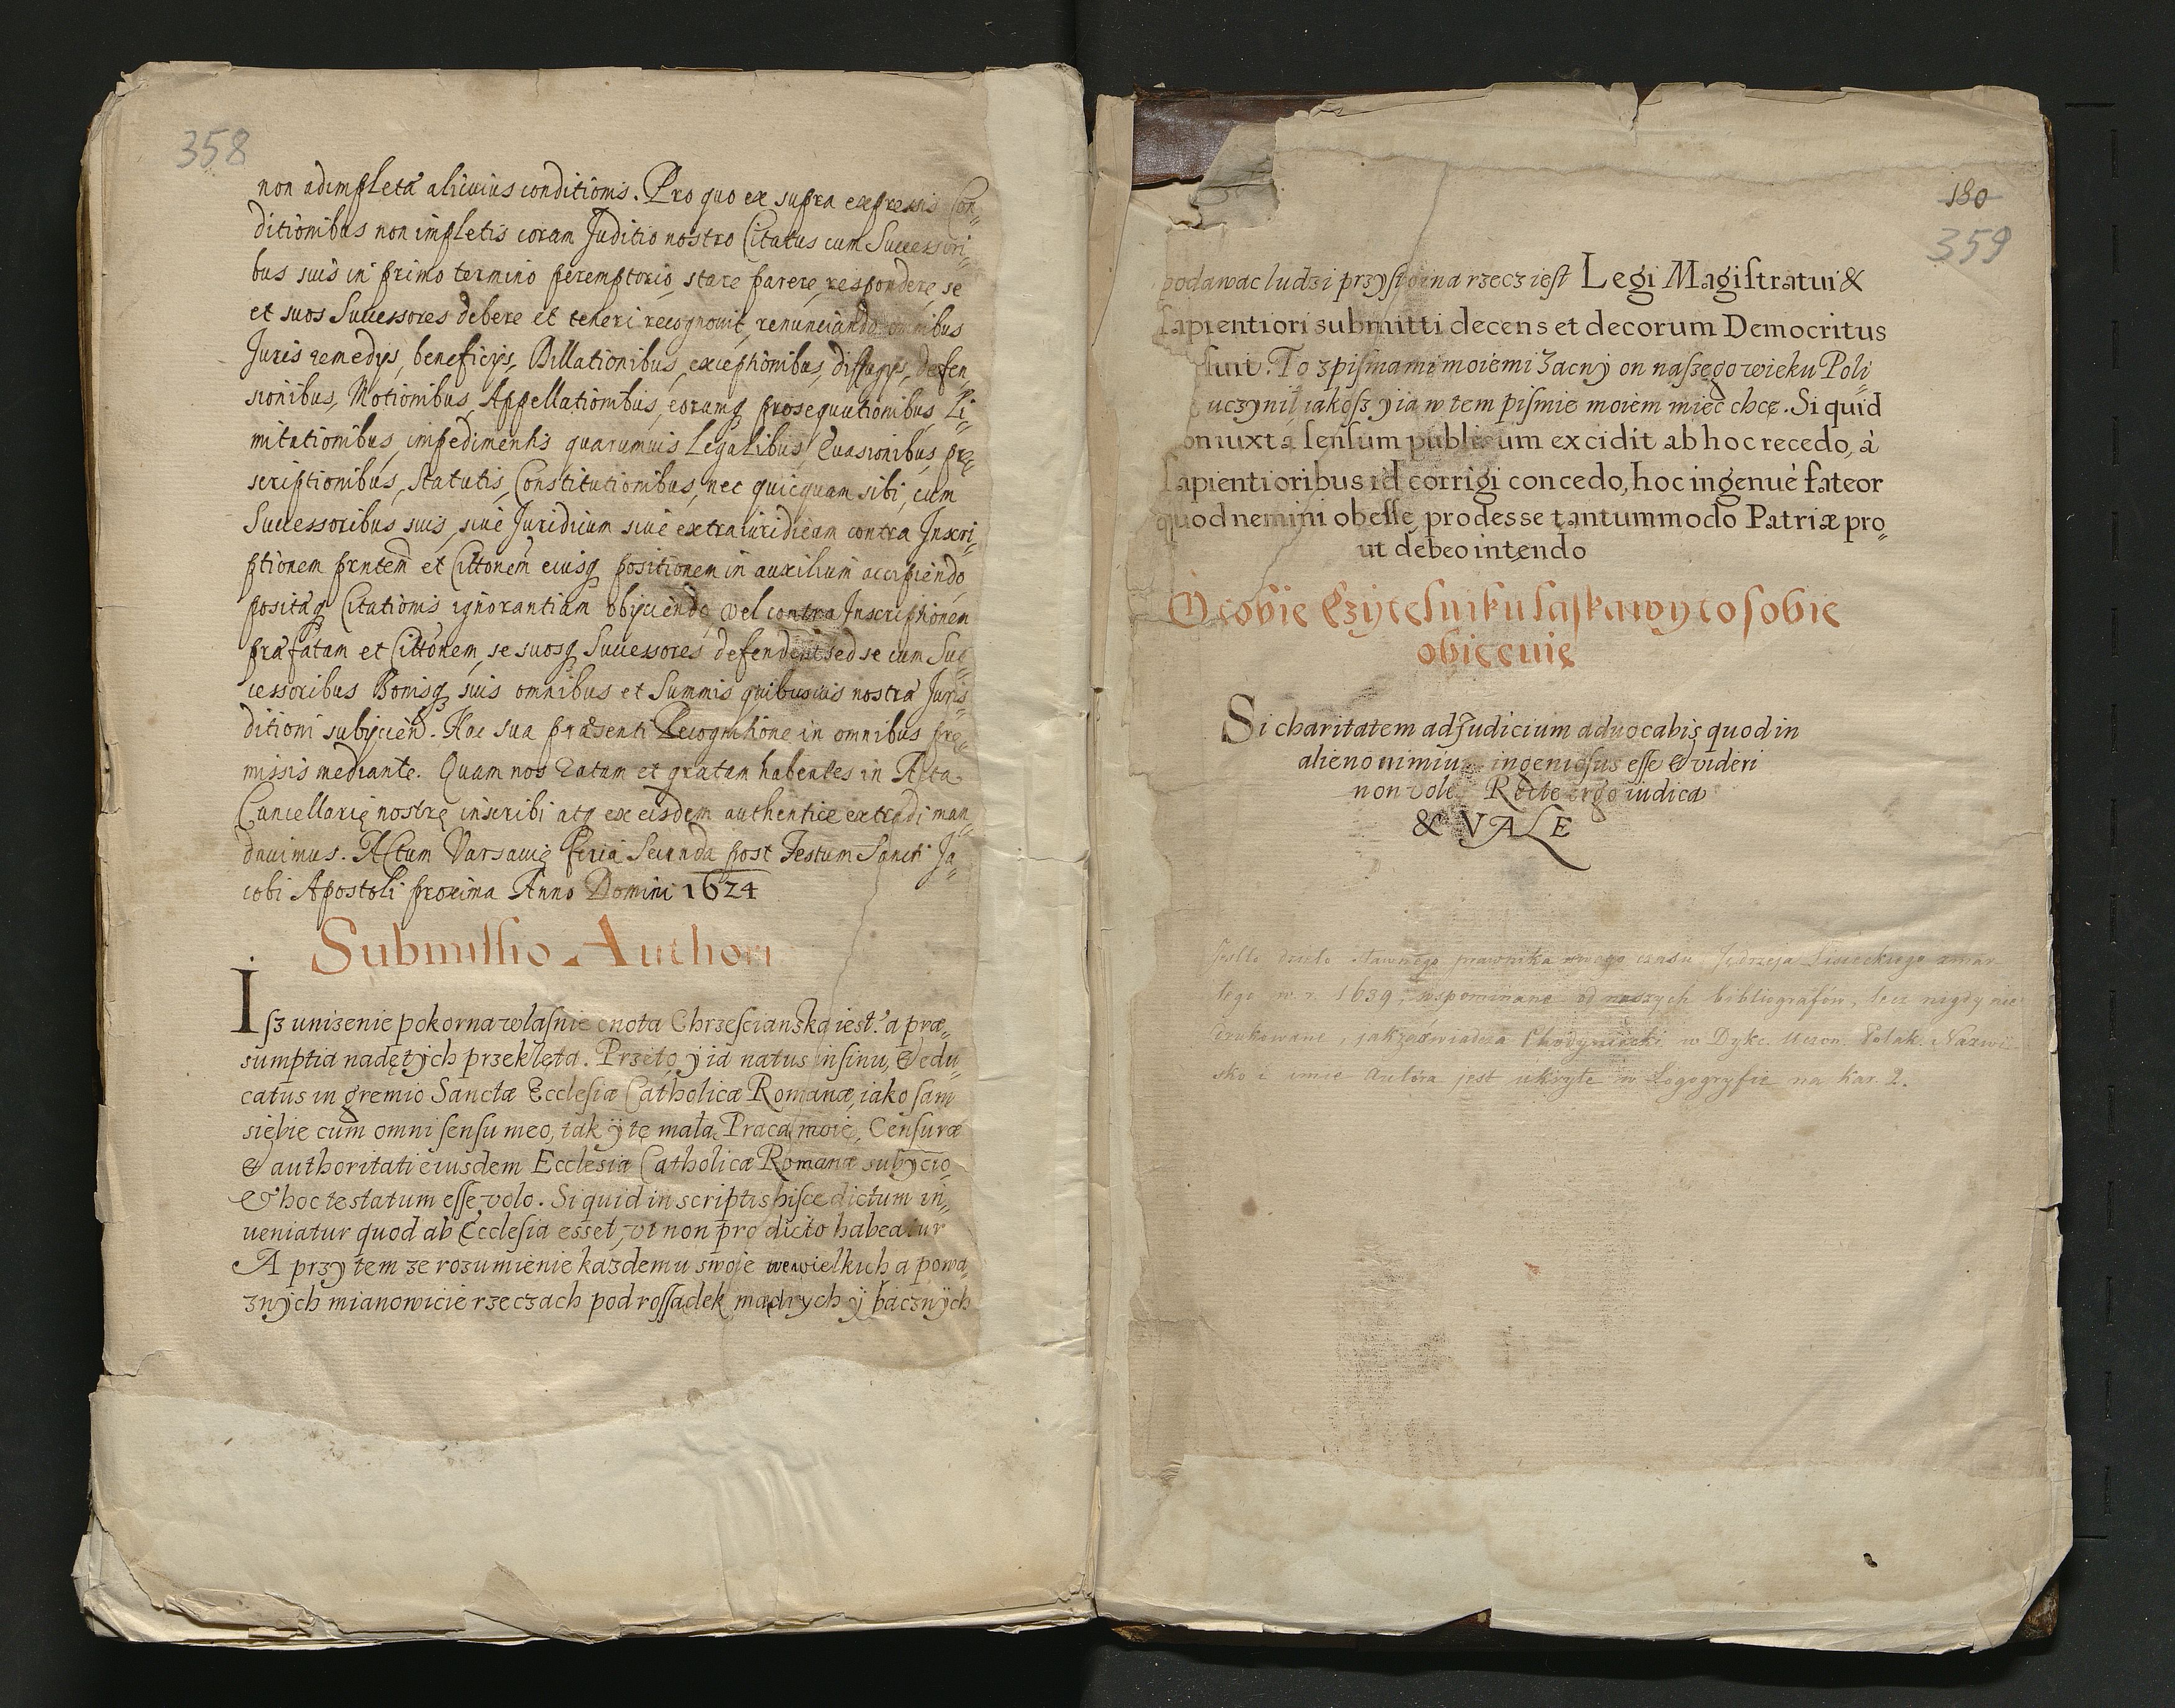 358
non adimpleta alicuius conditionis. Pro quo ex supra expressis Con„
ditionibus non impletis coram Juditio nostro Citatus cum Successori„
bus suis in primo termino peremptorio, stare parere, respondere, se
et suos Successores debere et teneri recognouit, renunciando omnibus
Juris remedys, beneficijs, Dillationibus, exceptionibus, diffugijs, defen„
sionibus, Motionibus, Appellationibus, eorumq prosequutionibus, Li„
mitationibus, impedimentis quarumuis Legalibus, Euasionibus, prę„
scriptionibus, Statutis, Constitutionibus, nec quicquam sibi, cum
Successoribus suis, siue Juridicum siue extraiuridicum contra Inscri„
ptionem prntem et Cittonem eiusq positionem in auxilium accipiendo
positaq Citationis ignorantiam obijciendo, vel contra Inscriptionem
præfatam et Cittonem, se suosq Successores defendent sed se cum Suc„
cessoribus Bonisq suis omnibus et Summis quibusuis nostra Juris„
ditioni subijcien. Hac sua præsenti Recognitione in omnibus prę„
missis mediante. Quam nos ratam et gratam habentes in Acta
Cancellarię nostrę inscribi atq ex eisdem authentice extradi man„
dauimus. Actum Varsauię Feria Secunda post Festum Sancti Ja„
cobi Apostoli proxima Anno Domini 1624
Submissio Authori
Isz unizenie pokorna wlasnie cnota Chrzescianska iest. a præ„
sumptia nadętych przeklęta. Przeto y ia natus in sinu, & edu„
catus in gremio Sanctæ Ecclesiæ Catholicæ Romanæ, iako sam
siebie cum omni sensu meo, tak y tę małą Pracą moię, Censuræ
& authoritati eiusdem Ecclesiæ Catholicæ Romanæ subycio
& hoc testatum esse volo. Si quid in scriptis hisce dictum in„
ueniatur quod ab Ecclesia esset, vt non pro dicto habeatur
A przy tem ze rozumienie kazdemu swoie we wielkich a powa„
znych mianowicie rzeczach pod rossadek mądrych y bacznych
180
359
podawac ludzi przystoina rzecz iest Legi Magistratui &
sapientiori submitti decens et decorum Democritus
To z pismami moiemi Zacny on naszego wieku Poli„
uczynił iakosz y ia w tem pismie moiem miec chcę. Si quid
non iuxta sensum publicum excidit ab hoc recedo, à
sapientioribus id corrigi concedo, hoc ingenuè fateor
quod nemini obesse, prodesse tantummodo Patriæ pro„
ut debeo intendo
O tobie Czytelniku łaskawy to sobie
obiecuię
Si charitatem ad Judicium aduocabis quod in
alieno nimium ingeniosus esse & videri
non vole Recte ergo iudica
& VALE
Jestto dzieło sławnego prawnika swego czasu Jędrzeja Lisieckiego zmar
łego w r. 1639, wspominane od naszych bibliografów, lecz nigdy nie
drukowane, jak zaświadcza Chodyniecki w Dykc. Uczon. Polak. Nazwi
sko i imie Autora jest ukryte w Logogryfie na kar. 2.